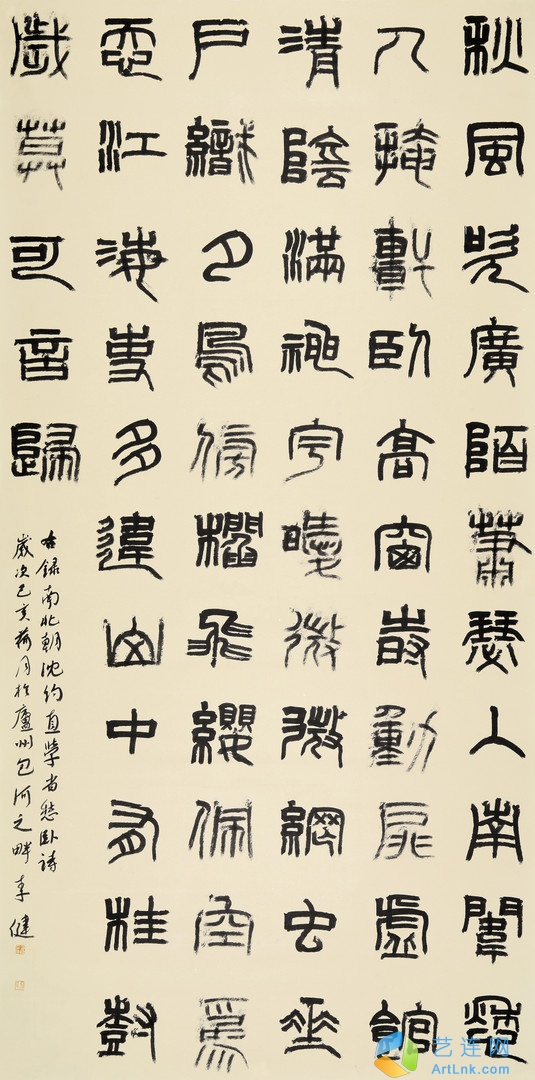 秋風吹廣陌蕭瑟入南闈愁
人掩軒臥高窗時動扉虛館
清陰滿神宇曖微微網虫垂
戶織夕鳥傍櫩飛纓佩空爲
忝江海事多違山中有桂樹
歲莫可言歸
右錄南北朝沈約直學省愁臥詩
歲次己亥荷月於廬州包河之畔李健
艺连网
ArtLnk.com